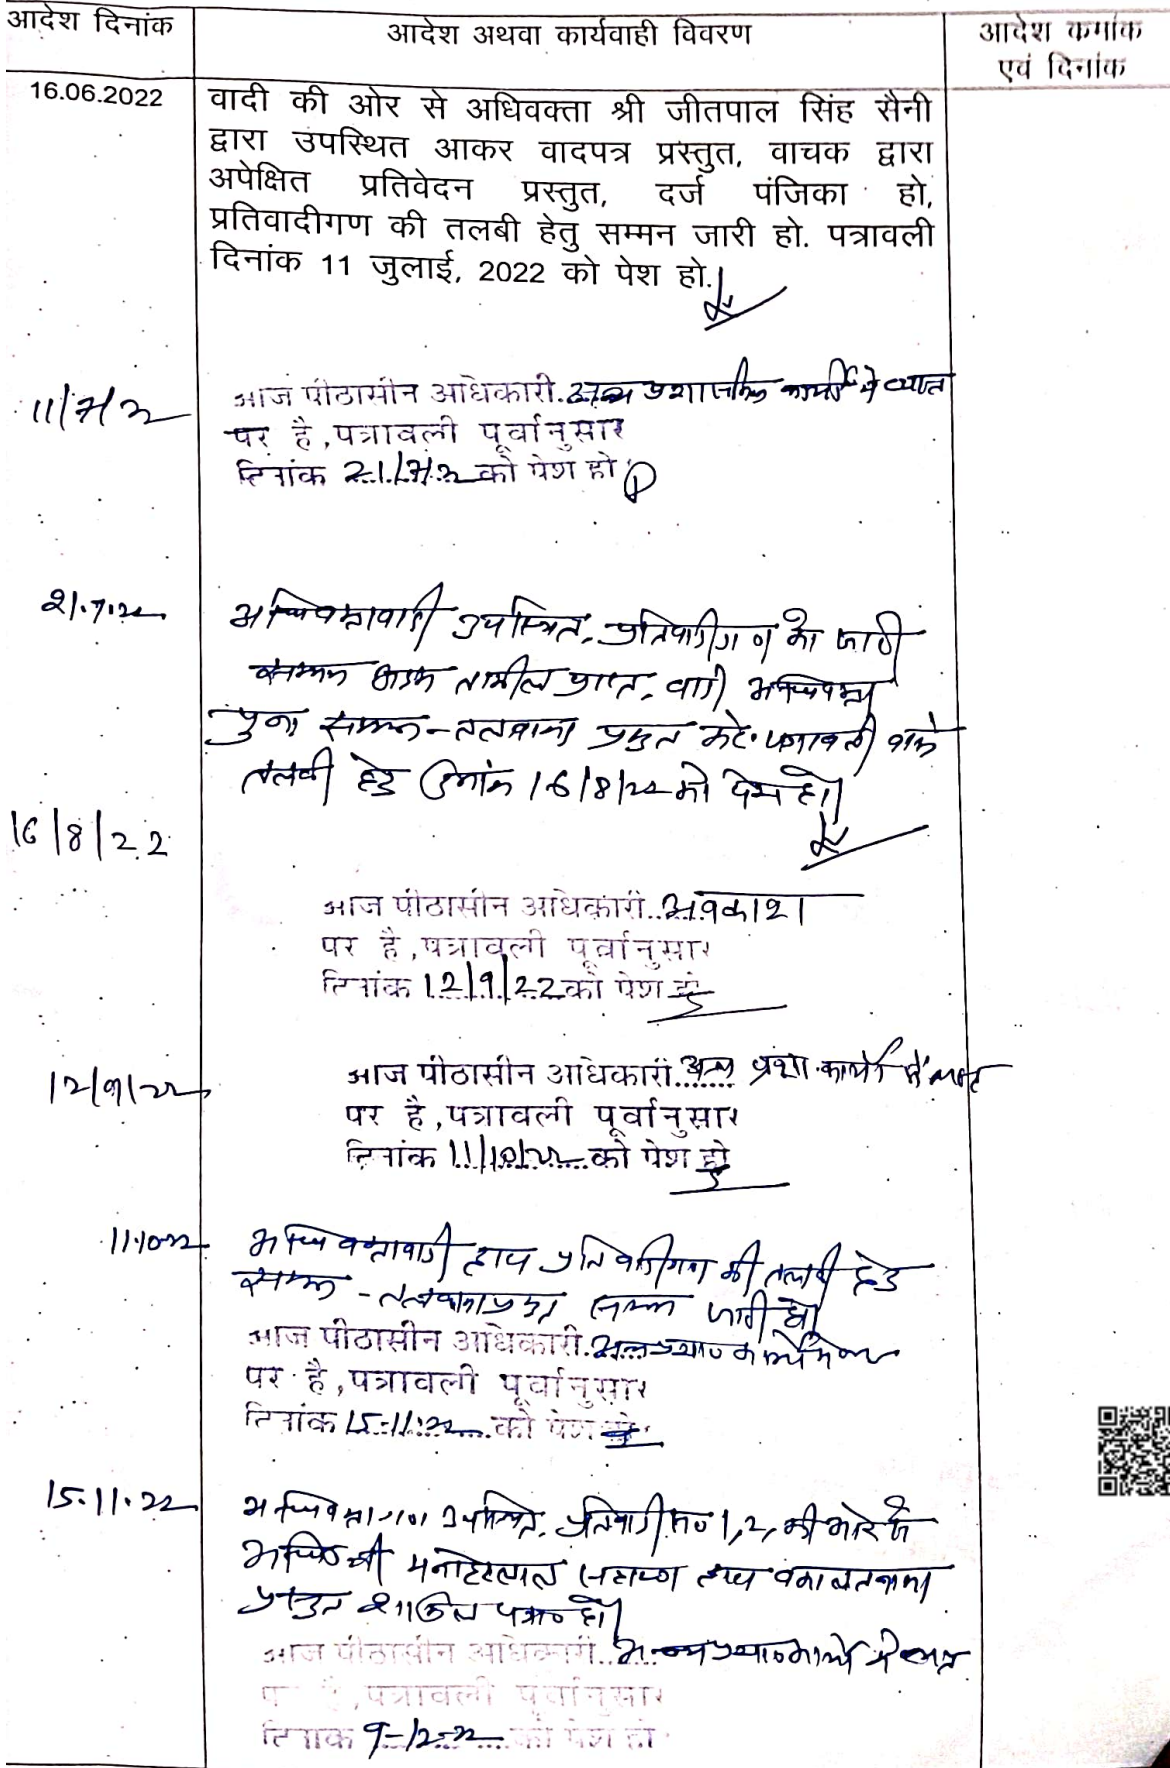 आदेश दिनांक
आदेश अथवा कार्यवाही विवरण
आदेश कमांक
एवं दिनांक
16.06.2022
वादी की ओर से अधिवक्ता श्री जीतपाल सिंह सैनी
द्वारा उपस्थित आकर वादपत्र प्रस्तुत, वाचक द्वारा
अपेक्षित प्रतिवेदन प्रस्तुत, दर्ज पंजिका हो,
प्रतिवादीगण की तलबी हेतु सम्मन जारी हो. पत्रावली
दिनांक 11 जुलाई, 2022 को पेश हो.
11/7/22
आज पीठासीन अधिकारी. अन्य प्रशासनिक कार्यों में व्यस्त
पर है, पत्रावली पूर्वानुसार
दिनांक 21/7/22 को पेश हो
21.7.22
अधिवक्तावादी उपस्थित, प्रतिवादीगण को जारी
सम्मन तामील प्राप्त, वादी अधिवक्ता
पुनः सम्मन-तलवाना प्रस्तुत करे. पत्रावली वास्ते
तलबी हेतु दिनांक 16/8/22 को पेश हो।
16/8/22
आज पीठासीन अधिकारी..अवकाश
पर है, पत्रावली पूर्वानुसार
दिनांक 12/9/22 को पेश हो
12/9/22
आज पीठासीन अधिकारी..अन्य प्रशा. कार्यों में व्यस्त
पर है, पत्रावली पूर्वानुसार
दिनांक 11/10/22 को पेश हो
11.10.22
अधिवक्तावादी द्वारा प्रतिवादीगण की तलबी हेतु
सम्मन-तलवाना प्रस्तुत सम्मन जारी हो।
आज पीठासीन अधिकारी. अन्य प्रशा० कार्यों में व्यस्त
पर है, पत्रावली पूर्वानुसार
दिनांक 15.11.22 को पेश हो
15.11.22
अधिवक्तागण उपस्थित, प्रतिवादी सं० 1,2, की ओर से
अधि० श्री मनोहरलाल द्वारा वकालतनामा
प्रस्तुत शामिल पत्रा० हो।
आज पीठासीन अधिकारी.. अन्य प्रशा० कार्यों में व्यस्त
पर है, पत्रावली पूर्वानुसार
दिनांक 9-12-22 को पेश हो